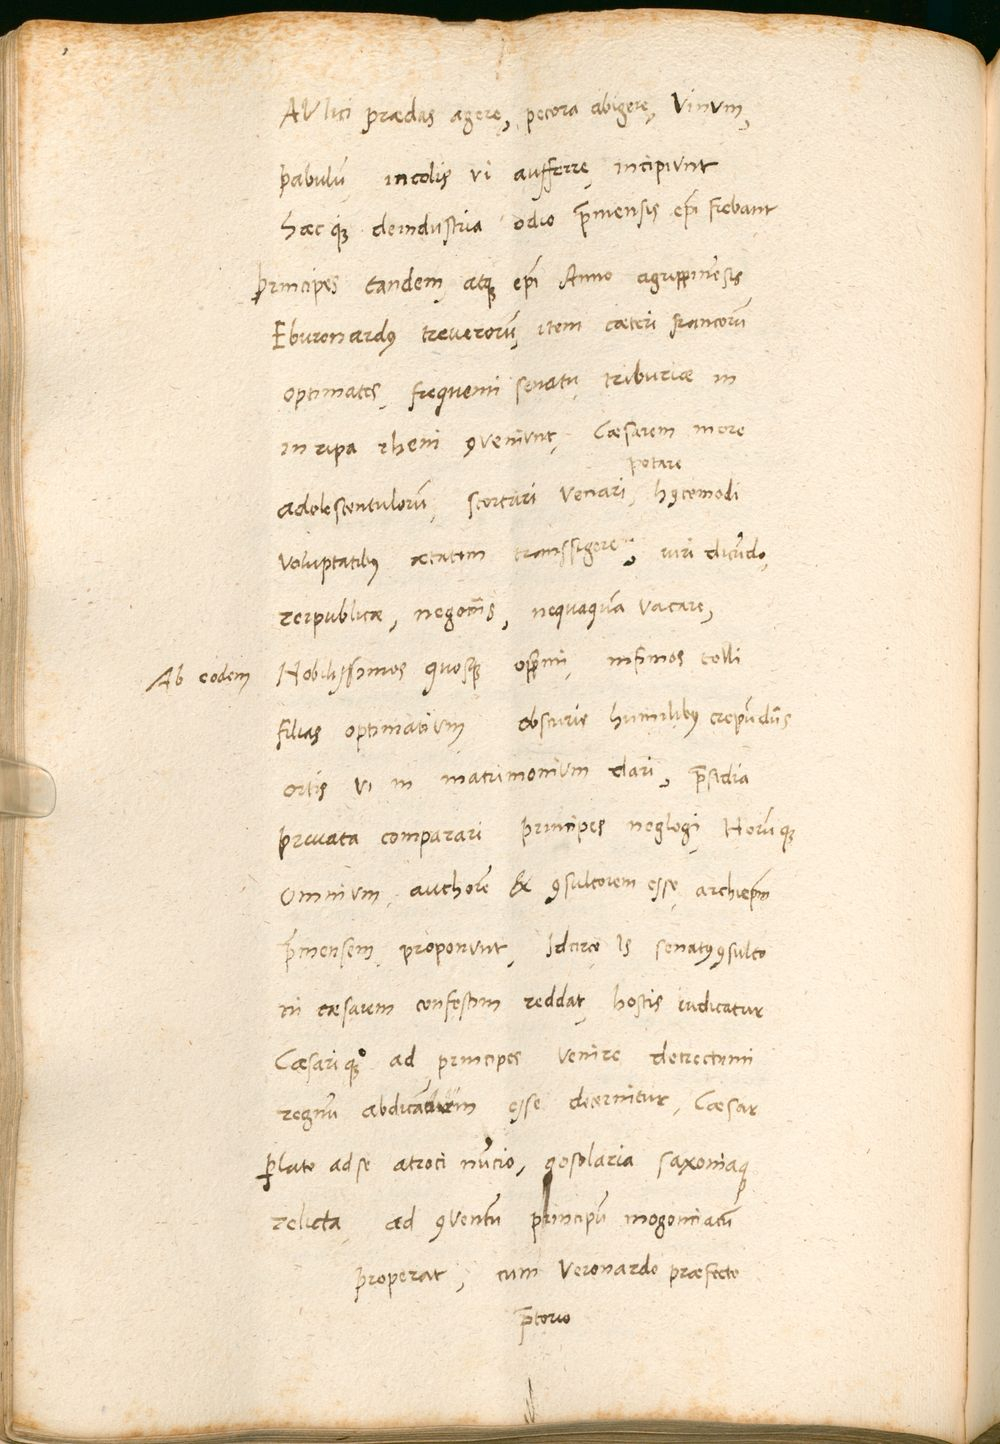 AVlici prædas agere, pecora abigere, Vinum,
pabulũ incolis vi aufferre incipiunt
hæcq; deindustria odio p̄mensis ep̄i fiebant
principes tandem atq; ep̄i Anno agrippinēsis
Eburonardꝰ treuerorũ, item cæteri francorũ
optimates, frequenti senatu triburiæ in
in ripa rheni ꝯveniunt, Cæsarem more
potare
adolescentulorũ, scortari venari, hꝰcemodi
voluptatibꝰ ætatem transsigere, iuri dicūdo,
reipublicæ, negotiis, nequaquã vacare,
Ab eodem Nobilissimos quosq; opp̄mi, infimos tolli
filias optimatium obscuris humilibꝰ crepũdiis
ortis vi in matrimonium dari, p̄sidia
privata comparari principes neglegi, Horũq;
Omnium, authorē & ꝯsultorem esse, archiep̄m
p̄mensem, proponunt, Idcirco Is senatꝰꝯsulto
ni cæsarem confestim reddat, hostis iudicatur
Cæsariq; ad principes venire detrectanti
regnũ abdicandum esse decernitur, Cæsar
ꝑlato adse atroci nũcio, goslaria saxoniaq;
relicta, ad ꝯventũ principũ mogontiacũ
properat, cum Veronardo præfecto
p̄torio